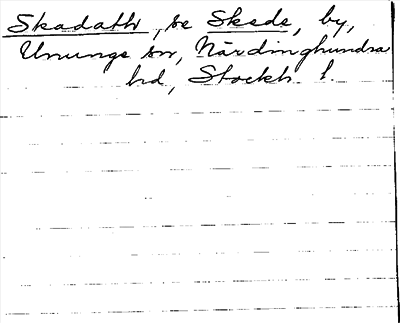 Skadath, se Skede, by,
Ununge sn, Närdinghundra
hd, Stockh. l.